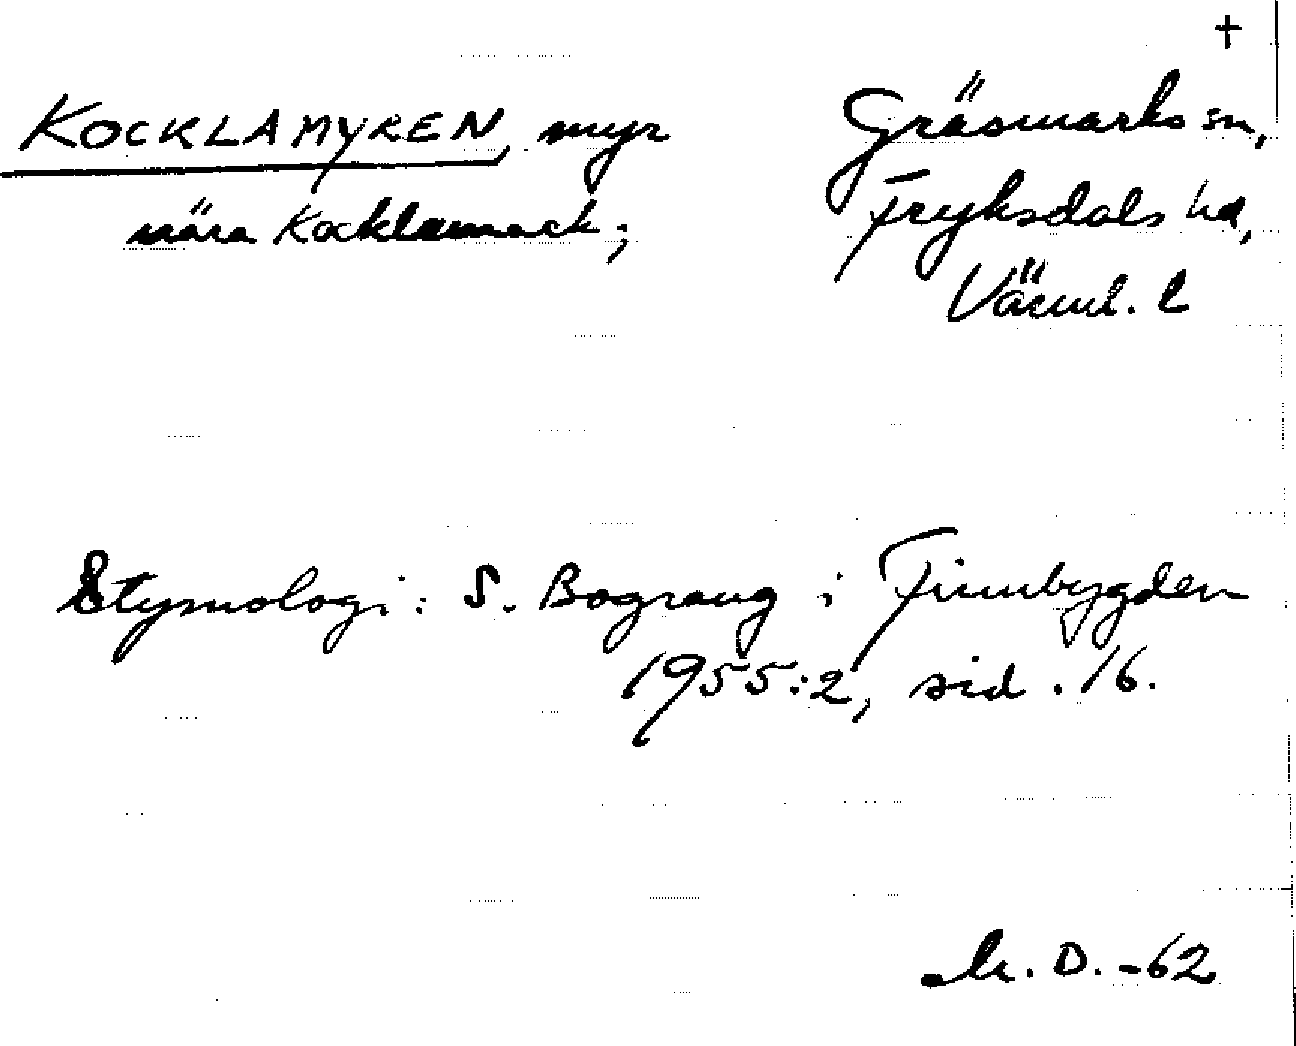 †
KOCKLAMYREN, myr
nära Kocklamack;
Gräsmarks sn,
Fryksdals hd,
Värml. l
Etymologi: S. Bograng i Finnbygden
1955:2, sid. 16.
D. -62